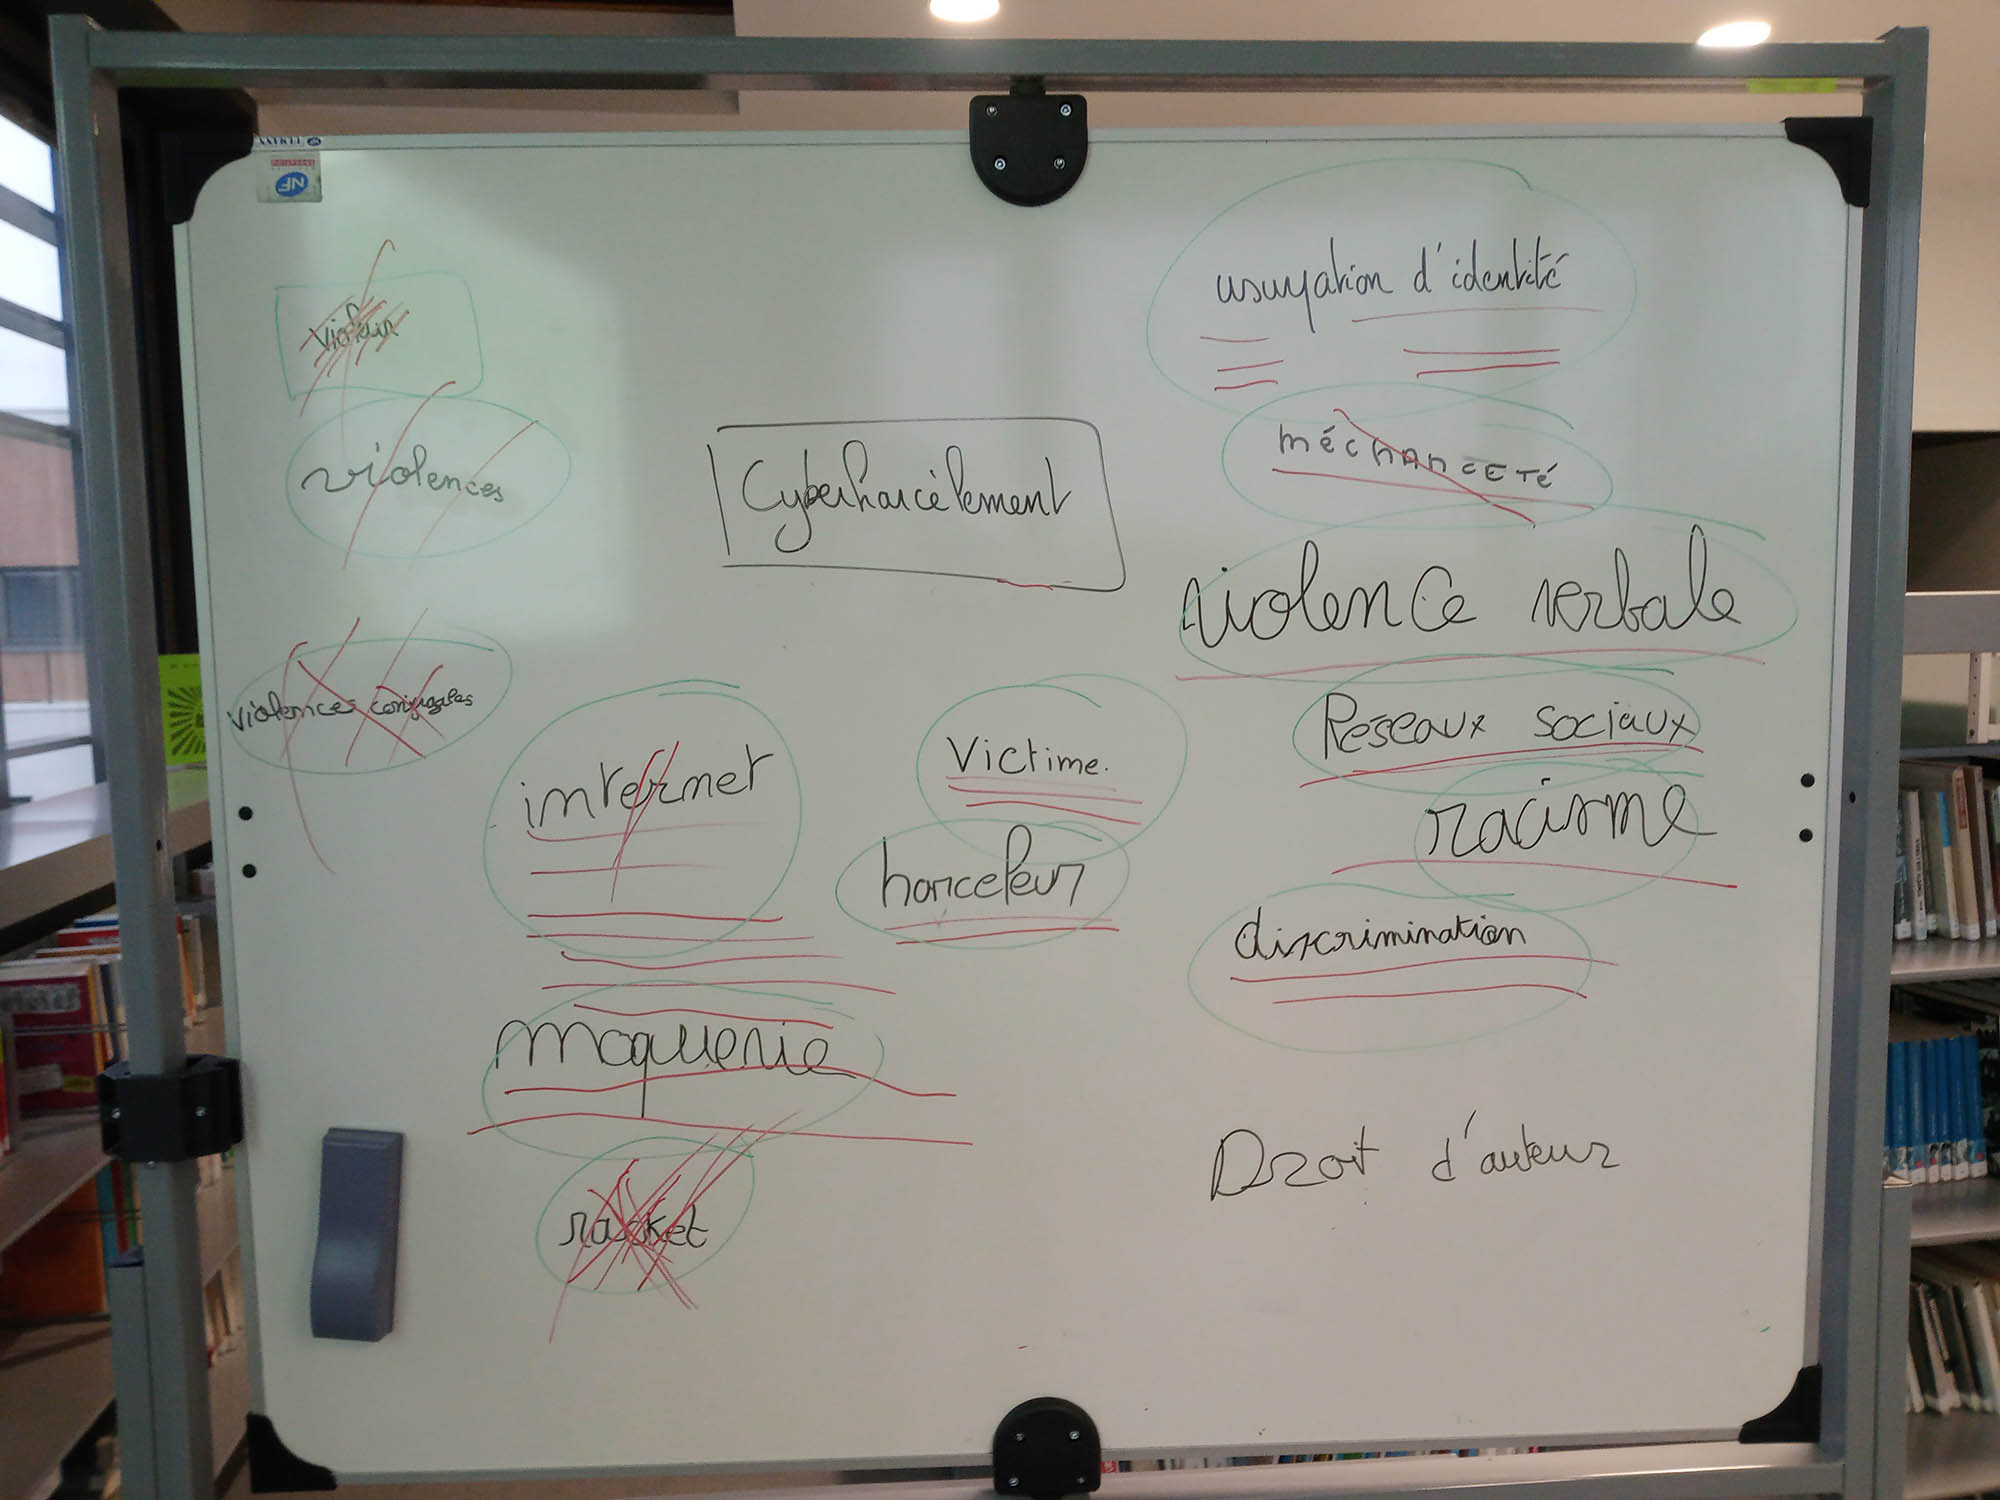 NF
usurpation d'identité
violeur
méchanceté
violences
Cyberharcèlement
violence verbale
violences conjugales
Reseaux sociaux
Victime.
internet
racisme
harceleur
discrimination
moquerie
Droit d'auteur
racket